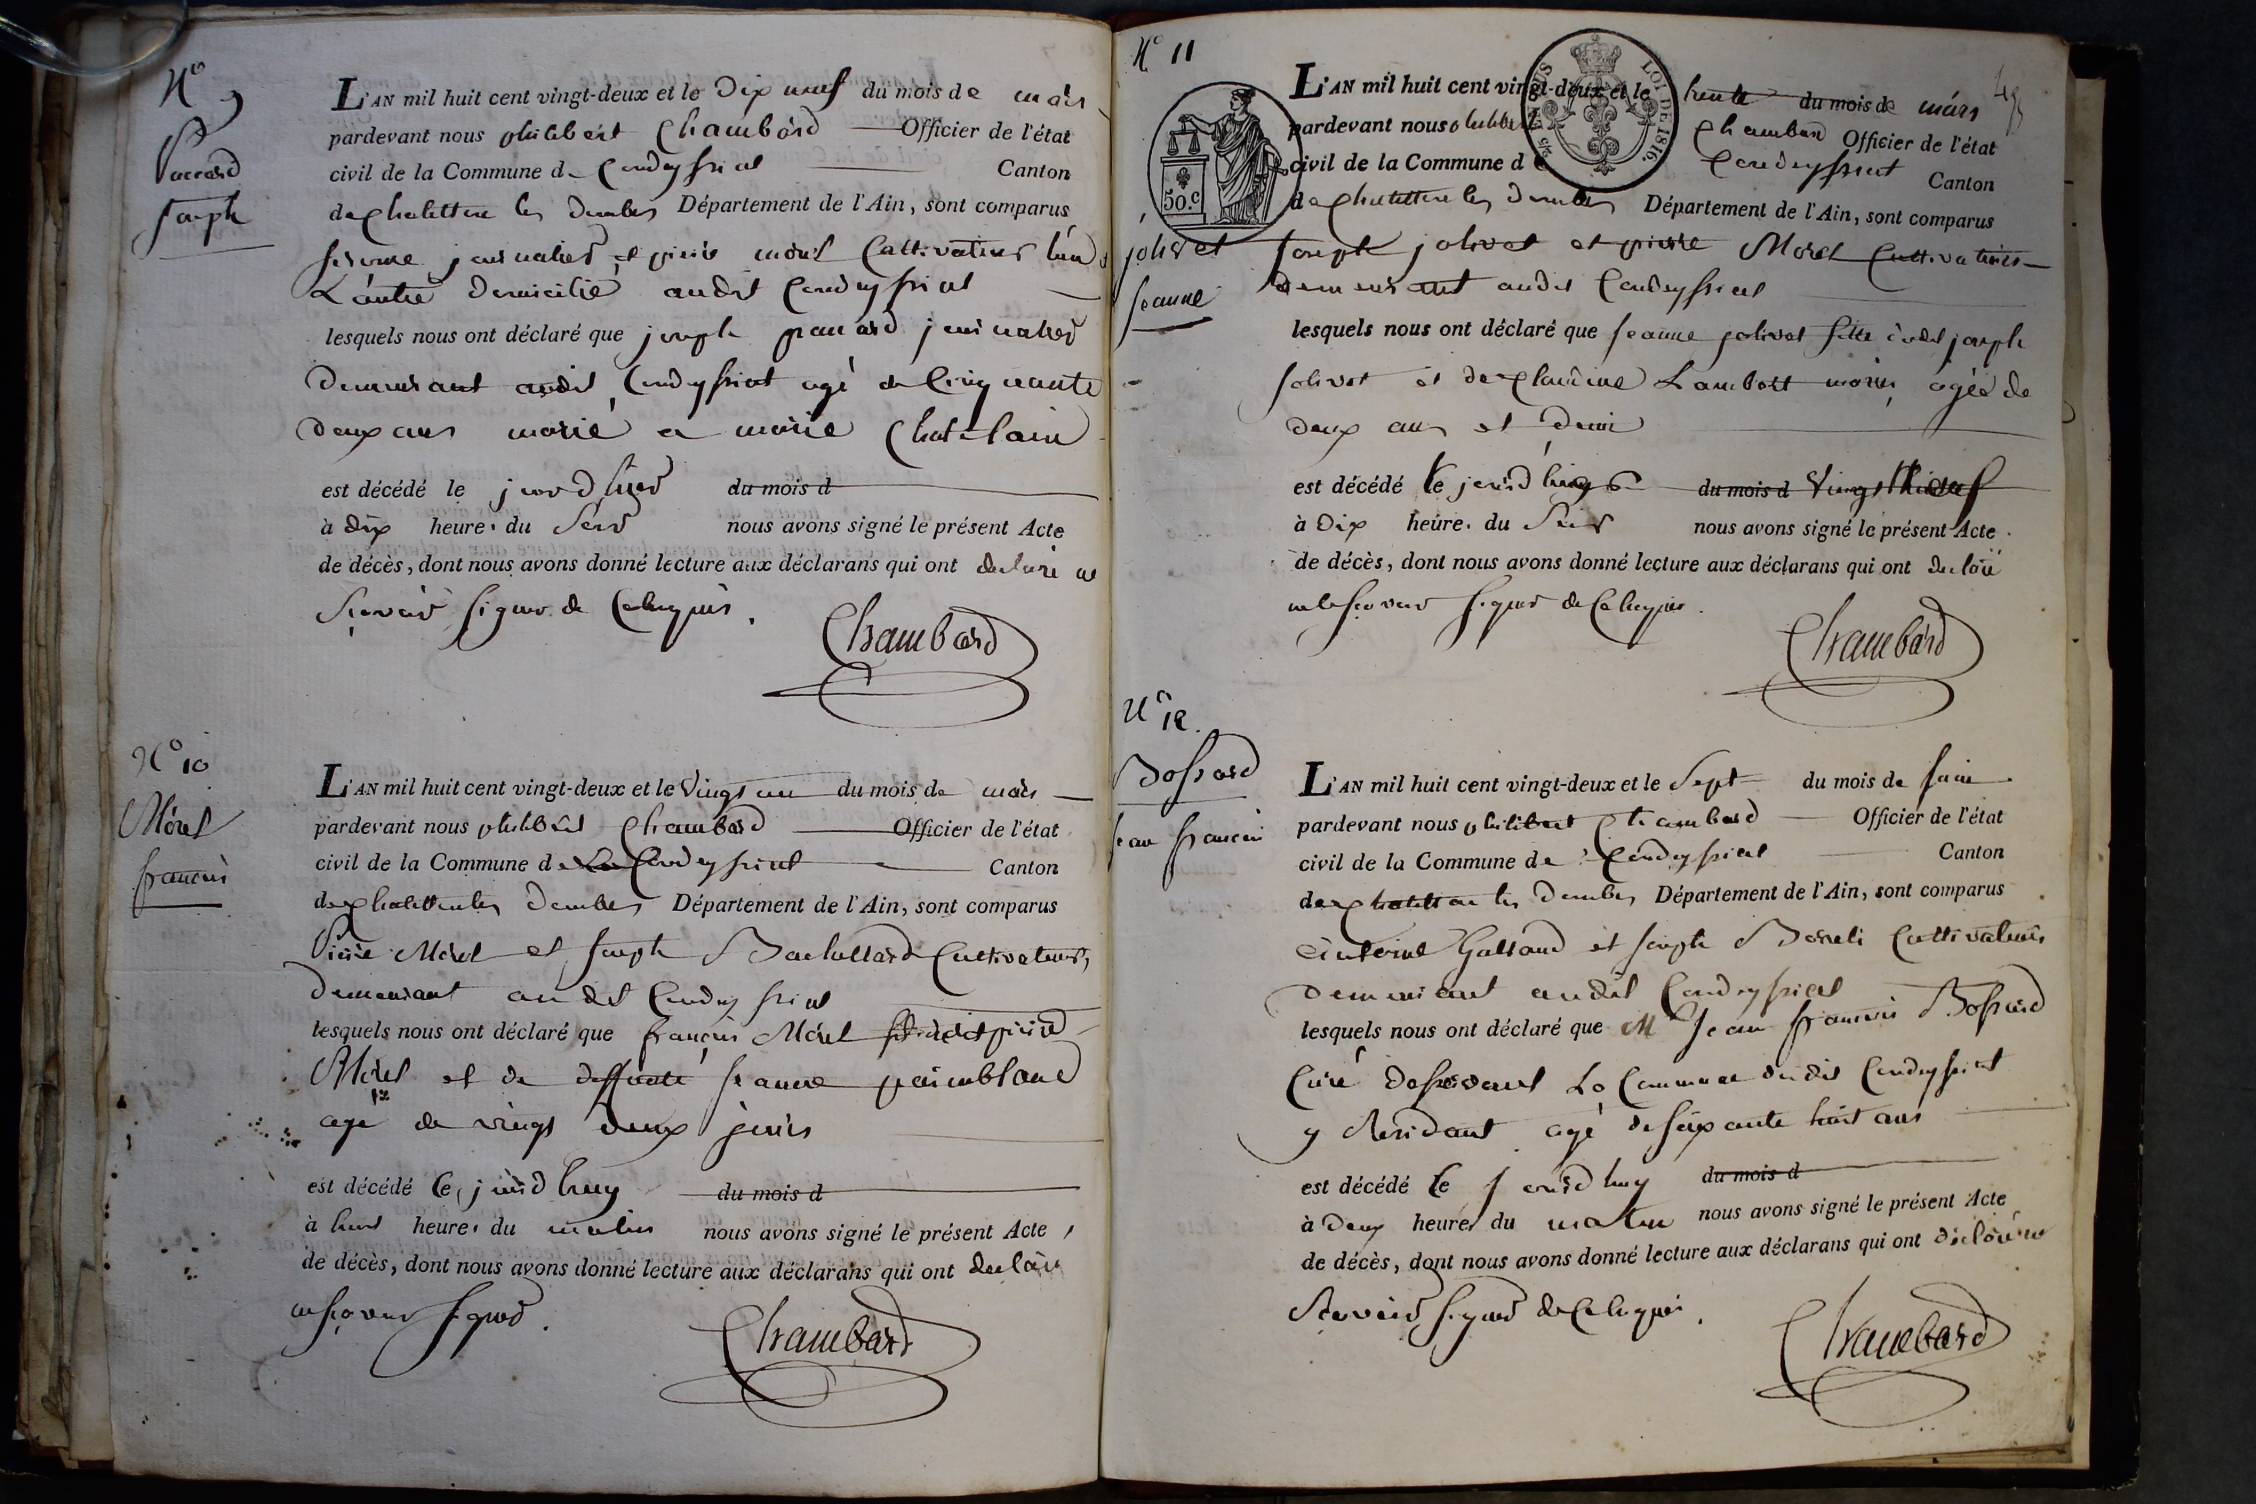 N° 9
Pacard
joseph
L'AN mil huit cent vingt-deux et le Dix neuf du mois de mars
pardevant nous philibert Chambard Officier de l'état
civil de la Commune d Condeyssiat Canton
de Chatillon les Dombes Département de l'Ain, sont comparus
journalier et pierre morel Cultivateur l'un
L'autre domicilié audit Condeyssiat
lesquels nous ont déclaré que joseph panard journalier
Demeurant audit Condeyssiat agé de Cinquante
deux ans marié a marie Chatelain
est décédé le jourdhuy du mois d
à dix heure du Soir nous avons signé le présent Acte
de décès, dont nous avons donné lecture aux déclarans qui ont declaré ne
Scavoir signer de Ce requis.
Chambard
N° 10
Morel
francois
L'AN mil huit cent vingt-deux et le Vingt un du mois de mars
pardevant nous philibert Chambard Officier de l'état
civil de la Commune de Condeyssiat Canton
de Chatillon les Dombes Département de l'Ain, sont comparus
Pierre Morel et joseph Bachallard Cultivateurs,
Demeurant audit Condeyssiat
lesquels nous ont déclaré que françois Morel fils dudit pierre
Morel et de deffunte jeanne painblanc
agé de vingt deux jours
est décédé Ce jourd huy du mois d
à huit heure du matin nous avons signé le présent Acte,
de décès, dont nous avons donné lecture aux déclarans qui ont declaré
ne scavoir signer.
Chambard
N° 11
jolivet
jeanne
50.C
LOI DE 1816.
L'AN mil huit cent vingt-deux et le trente du mois de mars
pardevant nous philibert Chambard Officier de l'état
civil de la Commune de Condeyssiat Canton
de Chatillon les Dombes Département de l'Ain, sont comparus
joseph jolivet et pierre Morel Cultivateurs
demeurant audit Condeyssiat
lesquels nous ont déclaré que jeanne jolivet fille dudit joseph
jolivet et de Claudine Lambert mariés, agée de
deux ans et demi
est décédé le jourd huy du mois d Vingt neuf
à Dix heure du Soir nous avons signé le présent Acte
de décès, dont nous avons donné lecture aux déclarans qui ont declaré
ne scavoir signer de Ce requis.
Chambard
N° 12.
Bossard
jean francois
L'AN mil huit cent vingt-deux et le Sept du mois de juin
pardevant nous philibert Chambard Officier de l'état
civil de la Commune de Condeyssiat Canton
de Chatillon les Dombes Département de l'Ain, sont comparus
Antoine Galland et joseph Cultivateurs
Demeurant audit Condeyssiat
lesquels nous ont déclaré que M jean francois Bossard
Curé desservant La Commune dudit Condeyssiat
y Residant agé de soixante huit ans
est décédé Ce jourd huy du mois d
à Deux heure du matin nous avons signé le présent Acte
de décès, dont nous avons donné lecture aux déclarans qui ont déclaré ne
Scavoir signer de Ce requis.
Chambard